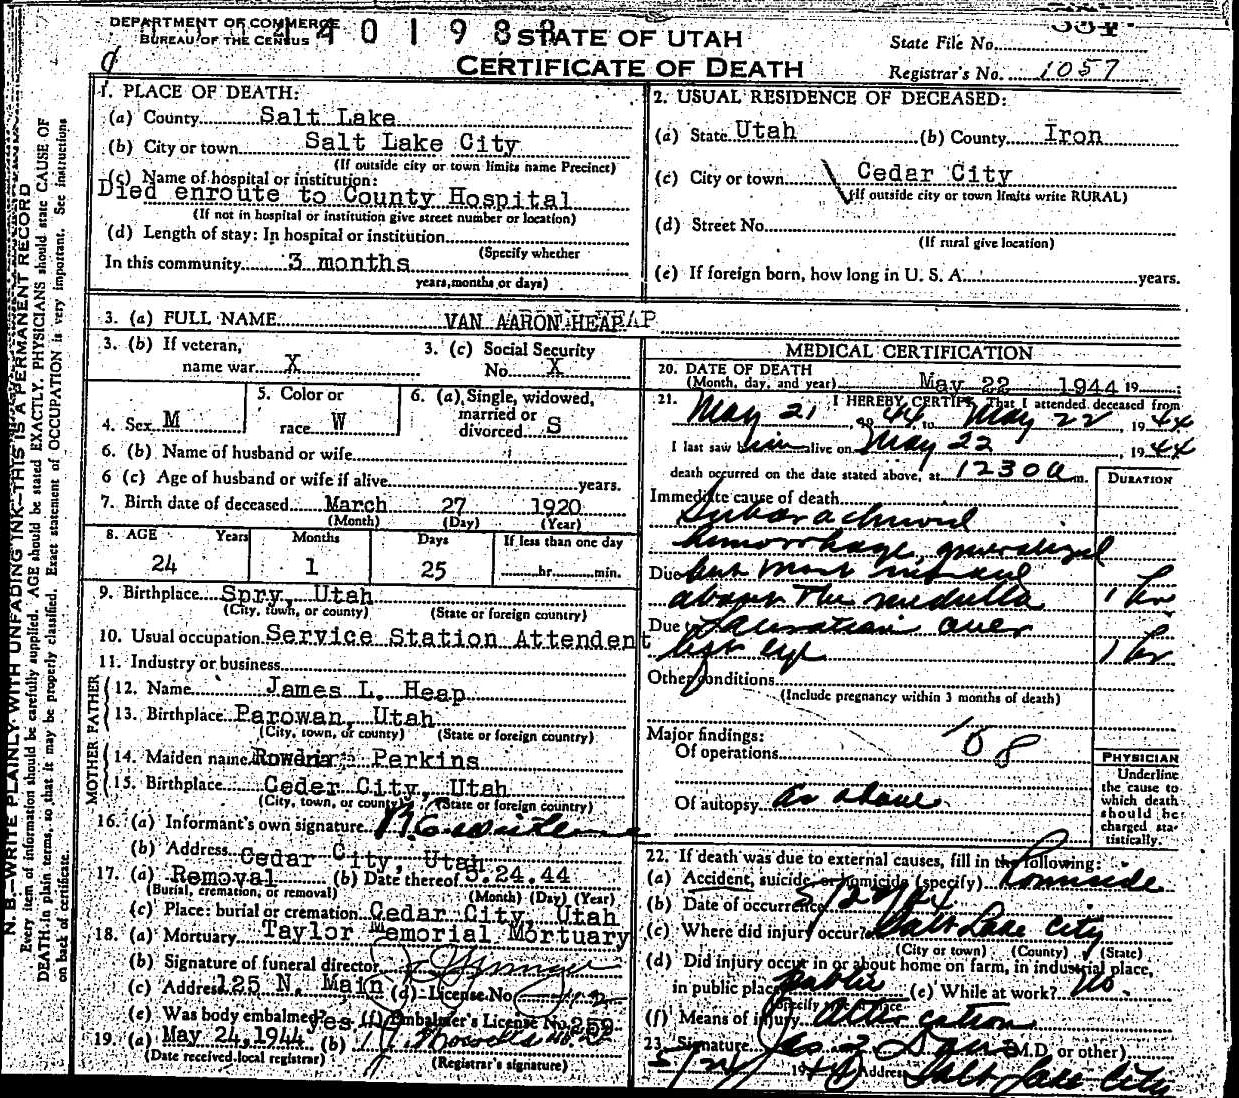 DEPARTMENT OF COMMERCE
BUREAU OF THE CENSUS
STATE OF UTAH
CERTIFICATE OF DEATH
State File No.
Registrar's No. 1057
N. B.—WRITE PLAINLY WITH UNFADING INK—THIS IS A PERMANENT RECORD
Every item of information should be carefully supplied. AGE should be stated EXACTLY. PHYSICIANS should state CAUSE OF
DEATH in plain terms, so that it may be properly classified. Exact statement of OCCUPATION is very important. See instructions
on back of certificate.
1. PLACE OF DEATH:
(a) County Salt Lake
(b) City or town Salt Lake City
(If outside city or town limits name Precinct)
(c) Name of hospital or institution:
Died enroute to County Hospital
(If not in hospital or institution give street number or location)
(d) Length of stay: In hospital or institution
(Specify whether
In this community 3 months
years, months or days)
2. USUAL RESIDENCE OF DECEASED:
(a) State Utah (b) County Iron
(c) City or town Cedar City
(If outside city or town limits write RURAL)
(d) Street No.
(If rural give location)
(e) If foreign born, how long in U. S. A. years.
3. (a) FULL NAME VAN AARON HEAP
3. (b) If veteran,
name war X
3. (c) Social Security
No. X
4. Sex M
5. Color or
race W
6. (a) Single, widowed,
married or
divorced S
6. (b) Name of husband or wife
6 (c) Age of husband or wife if alive years.
7. Birth date of deceased March 27 1920
(Month) (Day) (Year)
8. AGE Years Months Days If less than one day
24 1 25 hr. min.
9. Birthplace Spry, Utah
(City, town, or county) (State or foreign country)
10. Usual occupation Service Station Attendent
11. Industry or business
FATHER
12. Name James L. Heap
13. Birthplace Parowan, Utah
(City, town, or county) (State or foreign country)
MOTHER
14. Maiden name Perkins
15. Birthplace Ceder City, Utah
(City, town, or county) (State or foreign country)
16. (a) Informant's own signature
(b) Address Cedar City, Utah
17. (a) Removal (b) Date thereof 5.24.44
(Burial, cremation, or removal) (Month) (Day) (Year)
(c) Place: burial or cremation Cedar City, Utah
18. (a) Mortuary Taylor Memorial Mortuary
(b) Signature of funeral director
(c) Address 125 N. Main (d) License No.
(e) Was body embalmed? yes (f) Embalmer's License No. 259
19. (a) May 24, 1944 (b)
(Date received local registrar) (Registrar's signature)
MEDICAL CERTIFICATION
20. DATE OF DEATH
(Month, day, and year) May 22 1944 19
21. I HEREBY CERTIFY, That I attended deceased from
May 21 44 to May 22, 1944
I last saw him alive on May 22, 1944
death occurred on the date stated above, at 1230 a m.
DURATION
Immediate cause of death
Subarachnoid
hemorrhage, generalized
Due but most marked
above the medulla 1 hr
Due to Laceration over
left eye 1 hr
Other conditions
(Include pregnancy within 3 months of death)
168
Major findings:
Of operations
Of autopsy as above
PHYSICIAN
Underline
the cause to
which death
should be
charged sta-
tistically.
22. If death was due to external causes, fill in the following:
(a) Accident, suicide, or homicide (specify) Homicide
(b) Date of occurrence
(c) Where did injury occur? Salt Lake City
(City or town) (County) (State)
(d) Did injury occur in or about home on farm, in industrial place,
in public place public (e) While at work? No.
(Specify
(f) Means of injury Altercation
23. Signature (M.D. or other)
5/24 1944 Address Salt Lake City